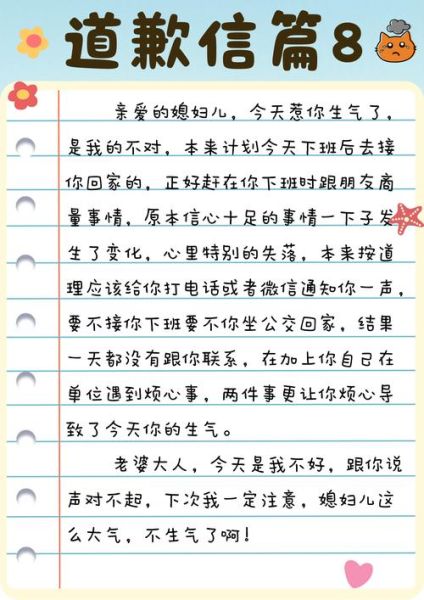 道歉信篇8
亲爱的媳妇儿，今天惹你生气了，
是我的不对，本来计划今天下班后去接
你回家的，正好赶在你下班时跟朋友商
量事情，原本信心十足的事情一下子发
生了变化，心里特别的失落，本来按道
理应该给你打电话或者微信通知你一声，
要不接你下班要不你坐公交回家，结果
一天都没有跟你联系，在加上你自己在
单位遇到烦心事，两件事更让你烦心导
致了今天你的生气。
老婆大人，今天是我不好，跟你说
声对不起，下次我一定注意，媳妇儿这
么大气，不生气了啊！